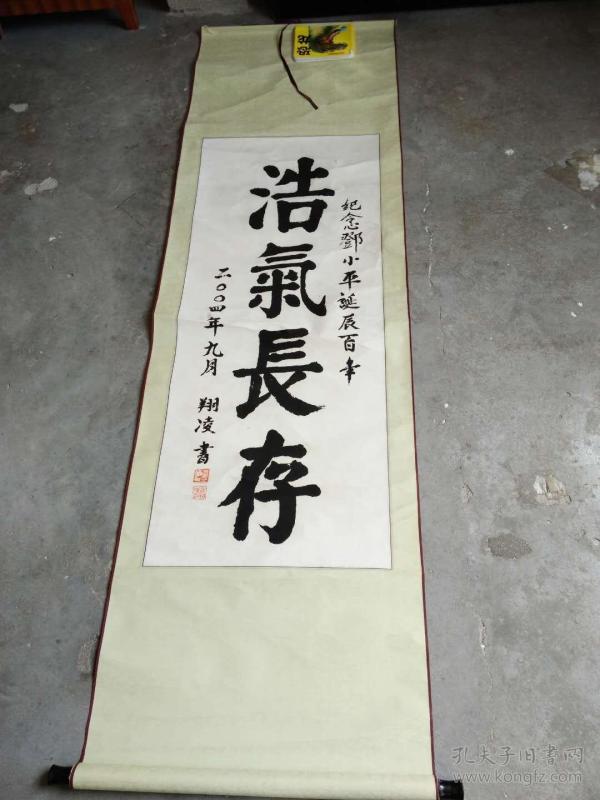 恐龙
纪念鄧小平誕辰百年
浩氣長存
二〇〇四年九月 翔凌書
孔夫子旧書网
www.kongfz.com